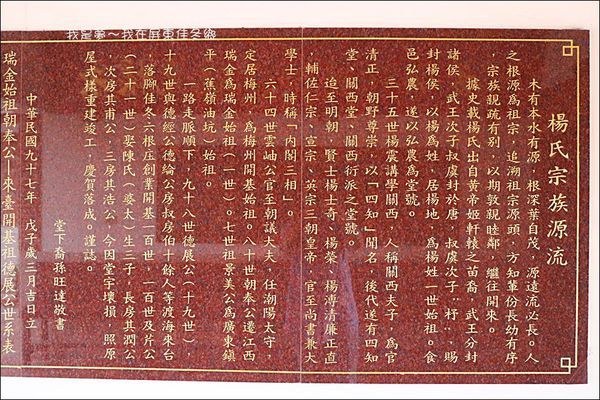 我是寧～我在屏東佳冬鄉
楊氏宗族源流
木有本水有源，根深葉自茂，源遠流必長。人
之根源為祖宗，追溯祖宗源頭，方知輩份長幼有序
，宗族親疏有別，以期敦親睦鄰，繼往開來。
據史載楊氏出自黃帝姬軒轅之苗裔，武王分封
諸侯，武王次子叔虞封於唐，叔虞次子『杼』，賜
封楊侯，以楊為姓，居楊地，為楊姓一世始祖。食
邑弘農，遂以弘農為堂號。
三十五世楊震講學關西，人稱關西夫子，為官
清正，朝野尊崇，以「四知」聞名，後代遂有四知
堂、關西堂、關西衍派之堂號。
迨至明朝，賢士楊士奇、楊榮、楊溥清廉正直
，輔佐仁宗、宣宗、英宗三朝皇帝，官至尚書兼大
學士，時稱「內閣三相」。
六十四世雲岫公官至朝議大夫，任潮陽太守，
定居梅州，為梅州開基始祖。八十世朝奉公遷江西
瑞金為瑞金始祖（一世）。七世祖景美公為廣東鎮
平（蕉嶺油坑）始祖。
一路走脈順下，九十八世德展公（十九世），
十九世與德經公德綸公房叔房伯十餘人等渡海來台
，落腳佳冬六根庄創業開基一百世，一百世及片公
（二十一世）娶陳氏（婆太）生三子，長房其潤公
，次房其甫公，三房其浩公，今因堂宇壞損，照原
屋式樣重建竣工，慶賀落成。謹誌。
堂下裔孫旺達敬書
中華民國九十七年　戊子歲三月吉日立
瑞金始祖朝奉公—來臺開基祖德展公世系表